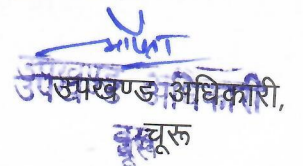 उपखण्ड अधिकारी,
चूरू